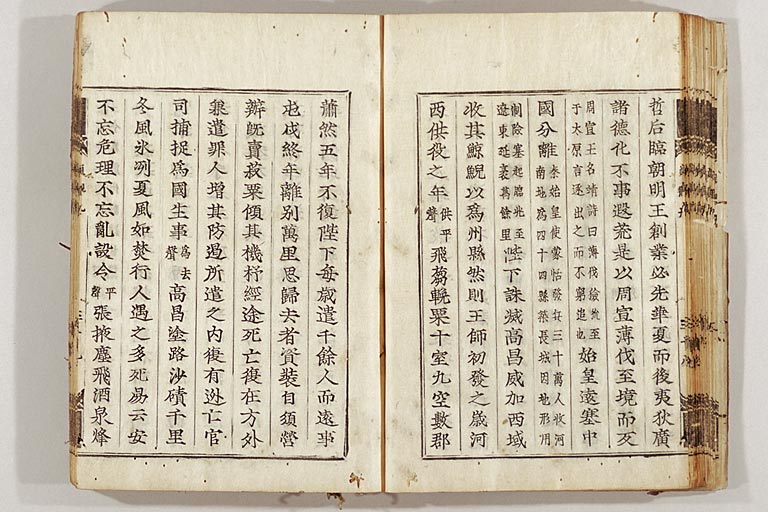 哲后臨朝明王創業必先華夏而後夷狄廣
諸德化不事遐荒是以周宣薄伐至境而反
周宣王名靖詩曰薄伐玁狁至
于太原言逐出之而不窮追也始皇遠塞中
國分離秦始皇使蒙恬發兵三十萬人收河
南地爲四十四縣築長城因地形用
制險塞起臨洮至
遼東延袤萬餘里陛下誅滅高昌威加西域
收其鯨鯢以爲州縣然則王師初發之歲河
西供役之年供平聲飛芻輓粟十室九空數郡
蕭然五年不復陛下每歲遣千餘人而遠事
屯戍終年離別萬里思歸去者資裝自須營
辦旣賣菽粟傾其機杼經途死亡復在方外
兼遣罪人增其防遏所遣之內復有逃亡官
司捕捉爲國生事爲去聲高昌塗路沙磧千里
冬風氷冽夏風如焚行人遇之多死易云安
不忘危理不忘亂設令平聲張掖塵飛酒泉烽